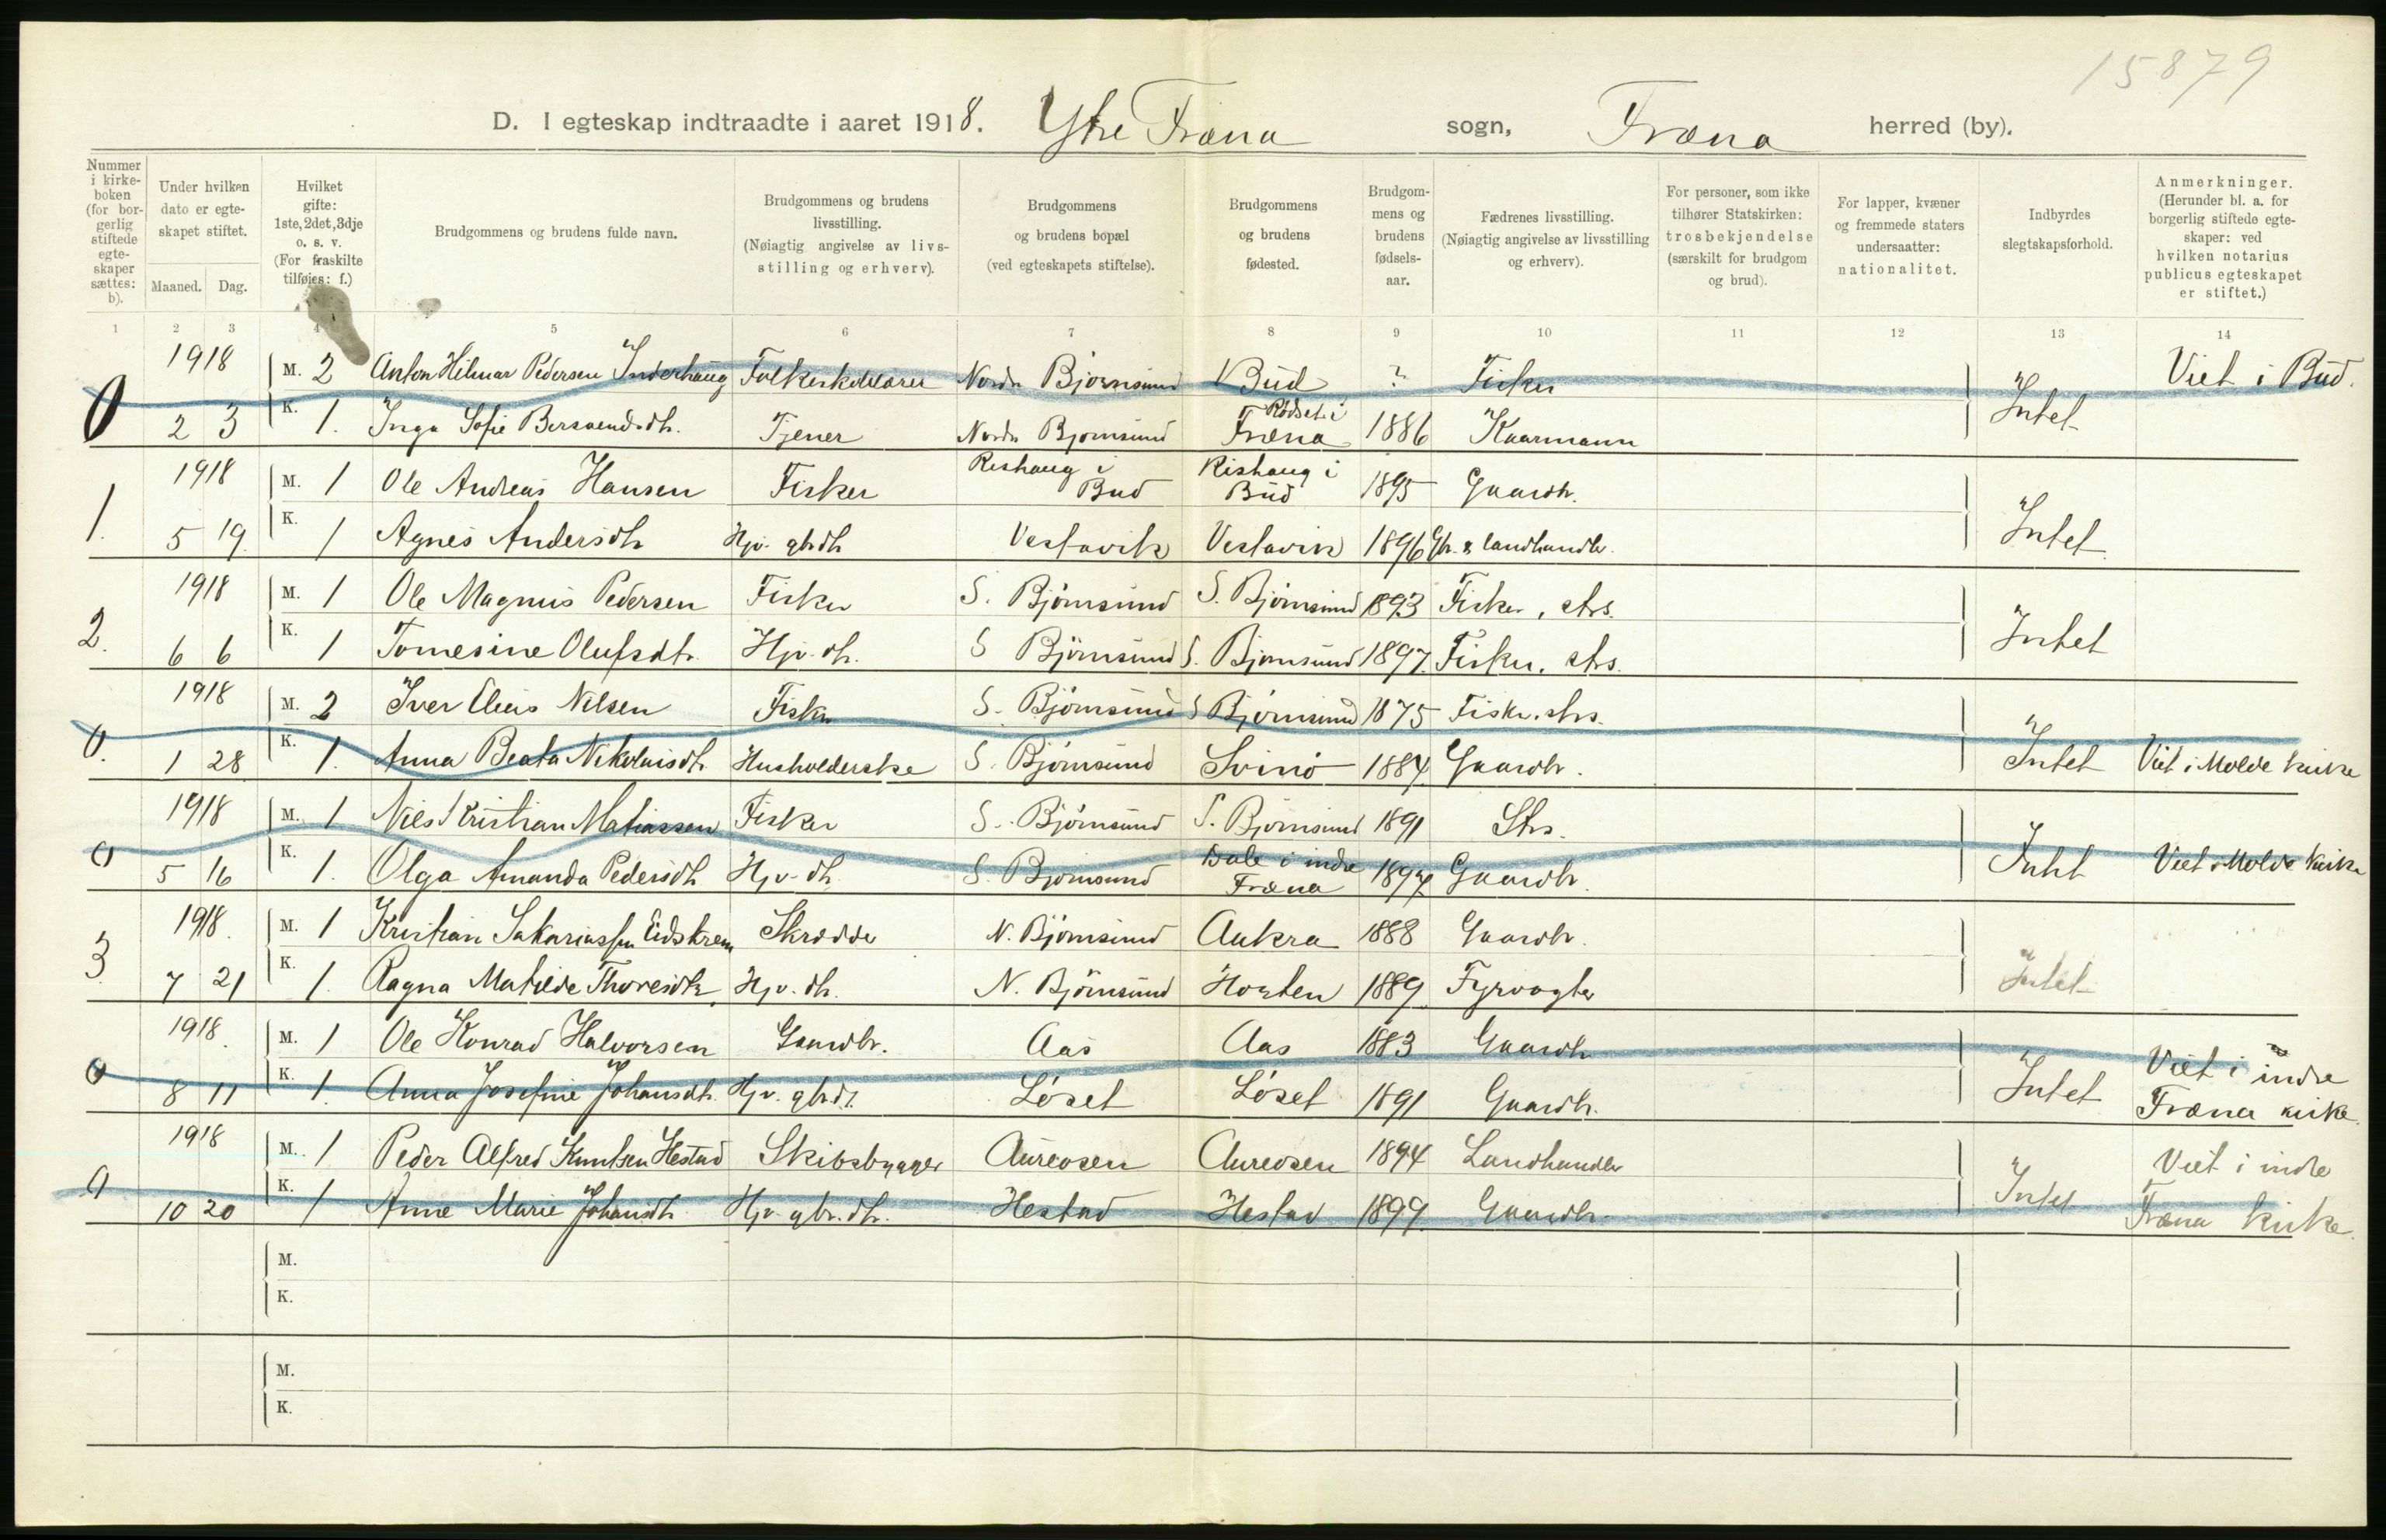 15879
D. I egteskap indtraadte i aaret 1918. Ytre Fræna sogn, Fræna herred (by).
Nummer i kirke-boken (for bor-gerlig stiftede egte-skaper sættes: b).
Under hvilken dato er egte-skapet stiftet.
Maaned. Dag.
Hvilket gifte: 1ste, 2det, 3dje o. s. v. (For fraskilte tilføies: f.)
Brudgommens og brudens fulde navn.
Brudgommens og brudens livsstilling. (Nøiagtig angivelse av livs-stilling og erhverv).
Brudgommens og brudens bopæl (ved egteskapets stiftelse).
Brudgommens og brudens fødested.
Brudgom-mens og brudens fødsels-aar.
Fædrenes livsstilling. (Nøiagtig angivelse av livsstilling og erhverv).
For personer, som ikke tilhører Statskirken: trosbekjendelse (særskilt for brudgom og brud).
For lapper, kvæner og fremmede staters undersaatter: nationalitet.
Indbyrdes slegtskapsforhold.
Anmerkninger. (Herunder bl. a. for borgerlig stiftede egte-skaper: ved hvilken notarius publicus egteskapet er stiftet.)
1 2 3 4 5 6 7 8 9 10 11 12 13 14
1918 M. 2 Anton Hilmar Pedersen Inderhaug Folkeskolelærer Nordr Bjørnsund Bud ? Fisker Viet i Bud.
0 2 3 K. 1. Inga Sofie Bersvendsdtr. Tjener Nordr Bjørnsund Rødset i Fræna 1886 Kaarmann Intet
1918 M. 1 Ole Andreas Hansen Fisker Rishaug i Bud Rishaug i Bud 1895 Gaardbr.
1. 5 19. K. 1 Agnes Andersdtr Hjv. gbrdtr Vestavik Vestavik 1896 Gbr. & landhandlr. Intet
1918 M. 1 Ole Magnus Pedersen Fisker S. Bjørnsund S. Bjørnsund 1893 Fisker, strs.
2. 6 6 K. 1 Tomesine Olufsdtr. Hjv. dtr. S Bjørnsund S. Bjørnsund 1897. Fisker. strs. Intet
1918 M. 2 Iver Nilsen Fisker S. Bjørnsund S Bjørnsund 1875 Fisker. strs.
0. 1 28 K. 1. Anna Beata Nikolaisdtr. Husholderske S. Bjørnsund Svinø 1884. Gaardbr. Intet Viet i Molde kirke
1918 M. 1 Nils Kristian Matiassen Fisker S. Bjørnsund S. Bjørnsund 1891 Strs.
0 5 16 K. 1. Olga Amanda Pedersdtr Hjv. dtr. S. Bjørnsund Dale i indre Fræna 1897 Gaardbr. Intet Viet i Molde kirke
1918. M. 1 Kristian Sakariassen Eidskrem Skrædder N. Bjørnsund Aukra 1888 Gaardbr.
3. 7 21 K. 1. Ragna Matilde Thoresdtr. Hjv. dtr. N. Bjørnsund Horten 1889 Fyrvogter Intet
1918. M. 1 Ole Konrad Halvorsen Gaardbr. Aas Aas 1883 Gaardbr Viet i indre
0 8 11 K. 1. Anna Josefine Johansdtr. Hjv. gbrdt. Løset Løset 1891 Gaardbr. Intet Fræna kirke.
1918 M. 1 Peder Alfred Knutsen Hestad Skibsbygger Aureosen Aureosen 1894 Landhandler Viet i indre
0 10 20 K. 1 Anne Marie Johansdtr. Hjv. gbr. dtr. Hestad Hestad 1899. Gaardbr. Intet Fræna kirke.
M.
K.
M.
K.